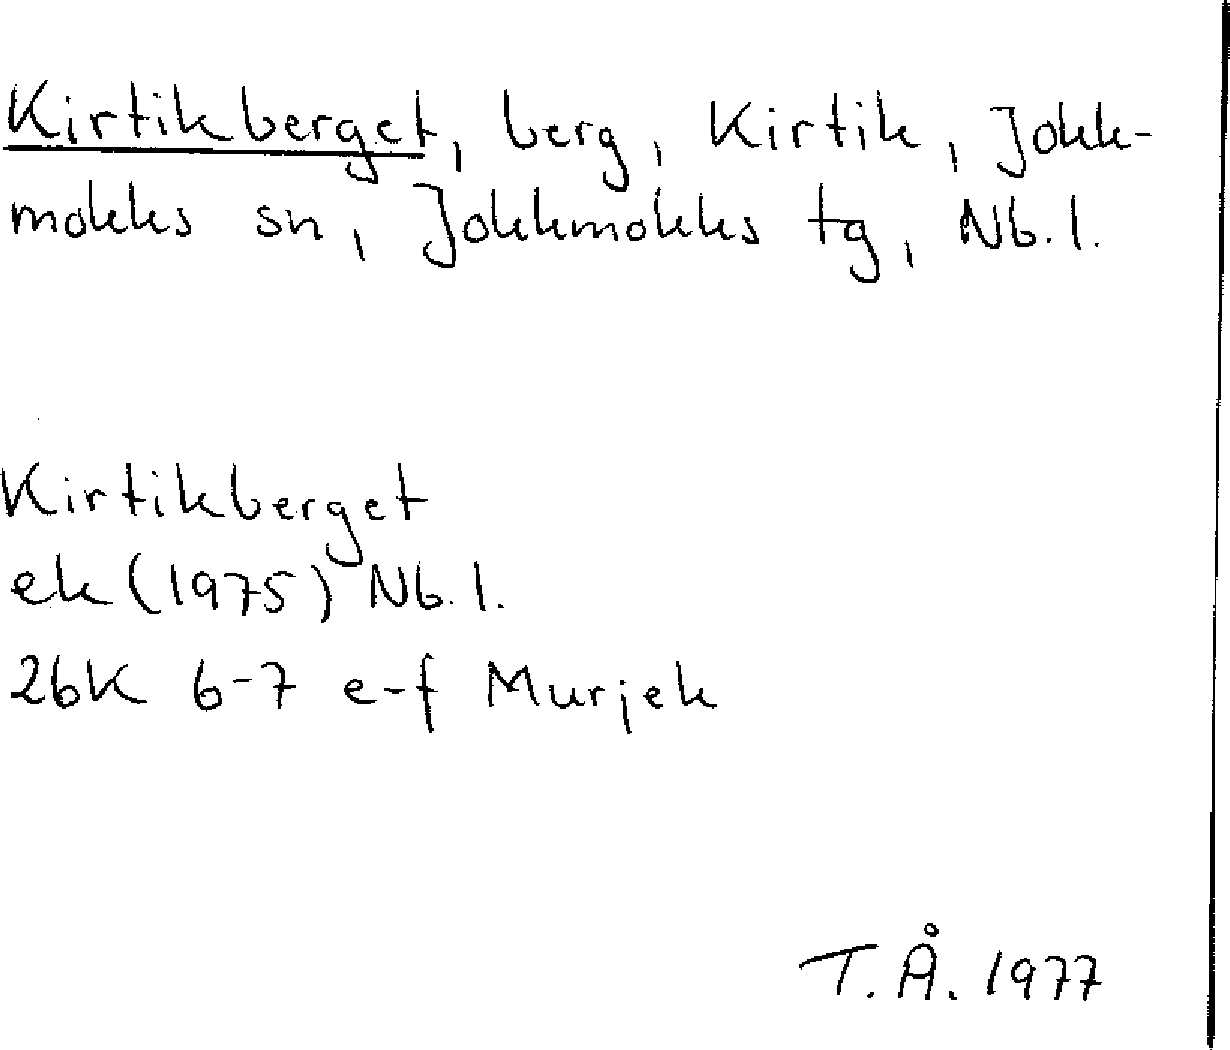 Kirtikberget, berg, Kirtik, Jokk-
mokks sn, Jokkmokks tg, Nb.l.
Kirtikberget
ek (1975) Nb.l.
26K 6-7 e-f Murjek
T.Å. 1977